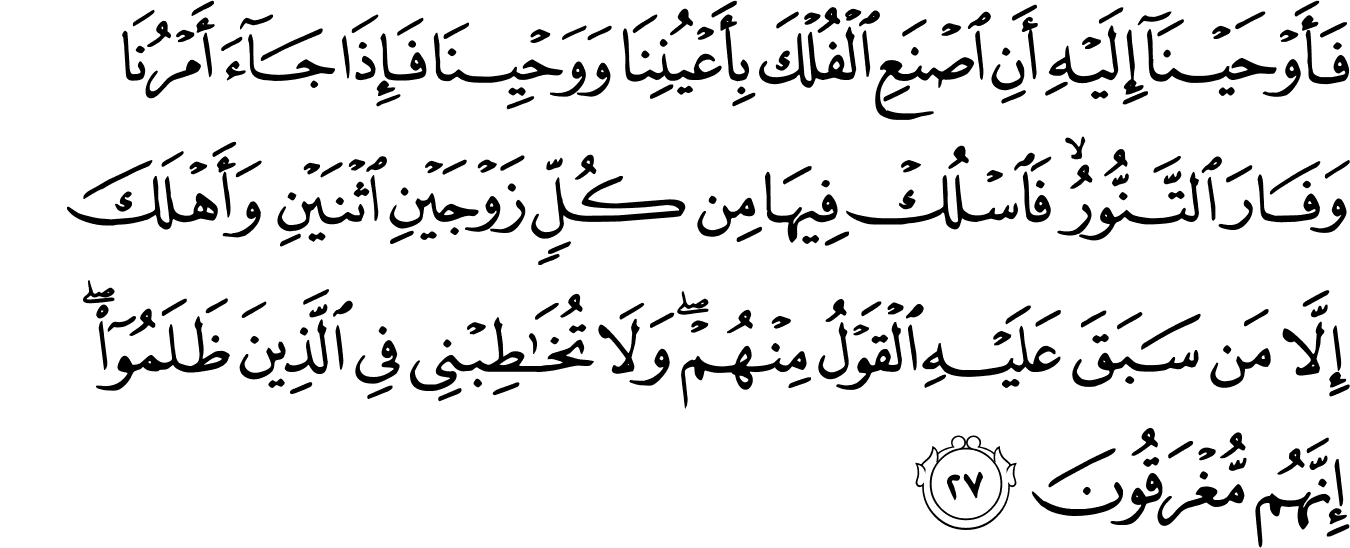 فَأَوۡحَيۡنَآ إِلَيۡهِ أَنِ ٱصۡنَعِ ٱلۡفُلۡكَ بِأَعۡيُنِنَا وَوَحۡيِنَا فَإِذَا جَآءَ أَمۡرُنَا
وَفَارَ ٱلتَّنُّورُ ۙ فَٱسۡلُكۡ فِيهَا مِن كُلّٖ زَوۡجَيۡنِ ٱثۡنَيۡنِ وَأَهۡلَكَ
إِلَّا مَن سَبَقَ عَلَيۡهِ ٱلۡقَوۡلُ مِنۡهُمۡ ۖ وَلَا تُخَٰطِبۡنِي فِي ٱلَّذِينَ ظَلَمُوٓاْ ۖ
إِنَّهُم مُّغۡرَقُونَ ٢٧